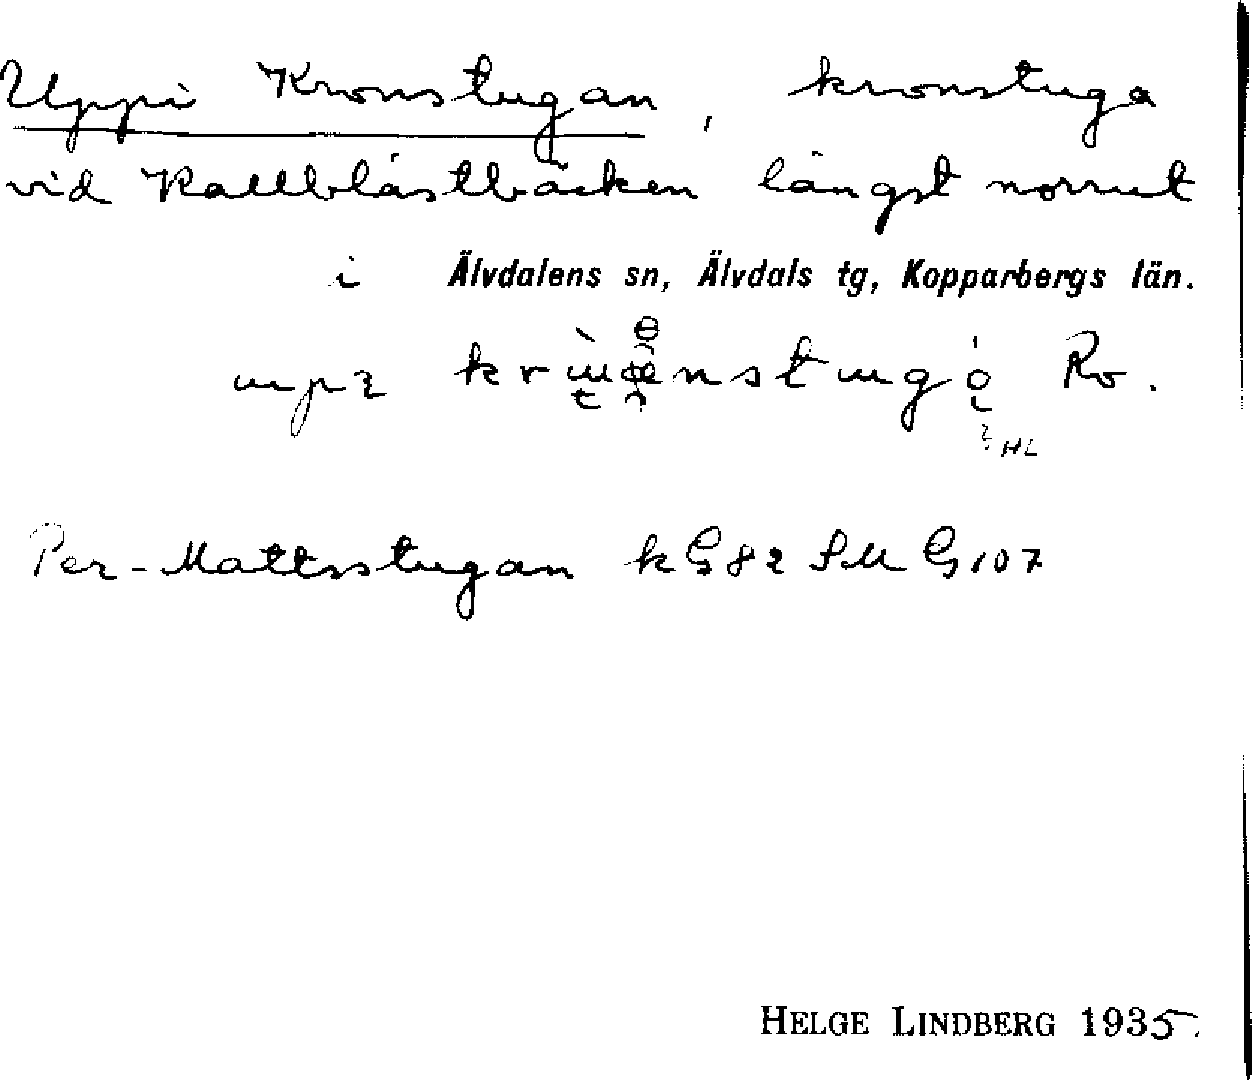 Uppi Kronstugan, kronstuga
vid Kallblåstbäcken längst norrut
i Älvdalens sn, Älvdals tg, Kopparbergs län.
Ro.
? HL
Per-Mattsstugan k G82 SM G107
HELGE LINDBERG 1935.